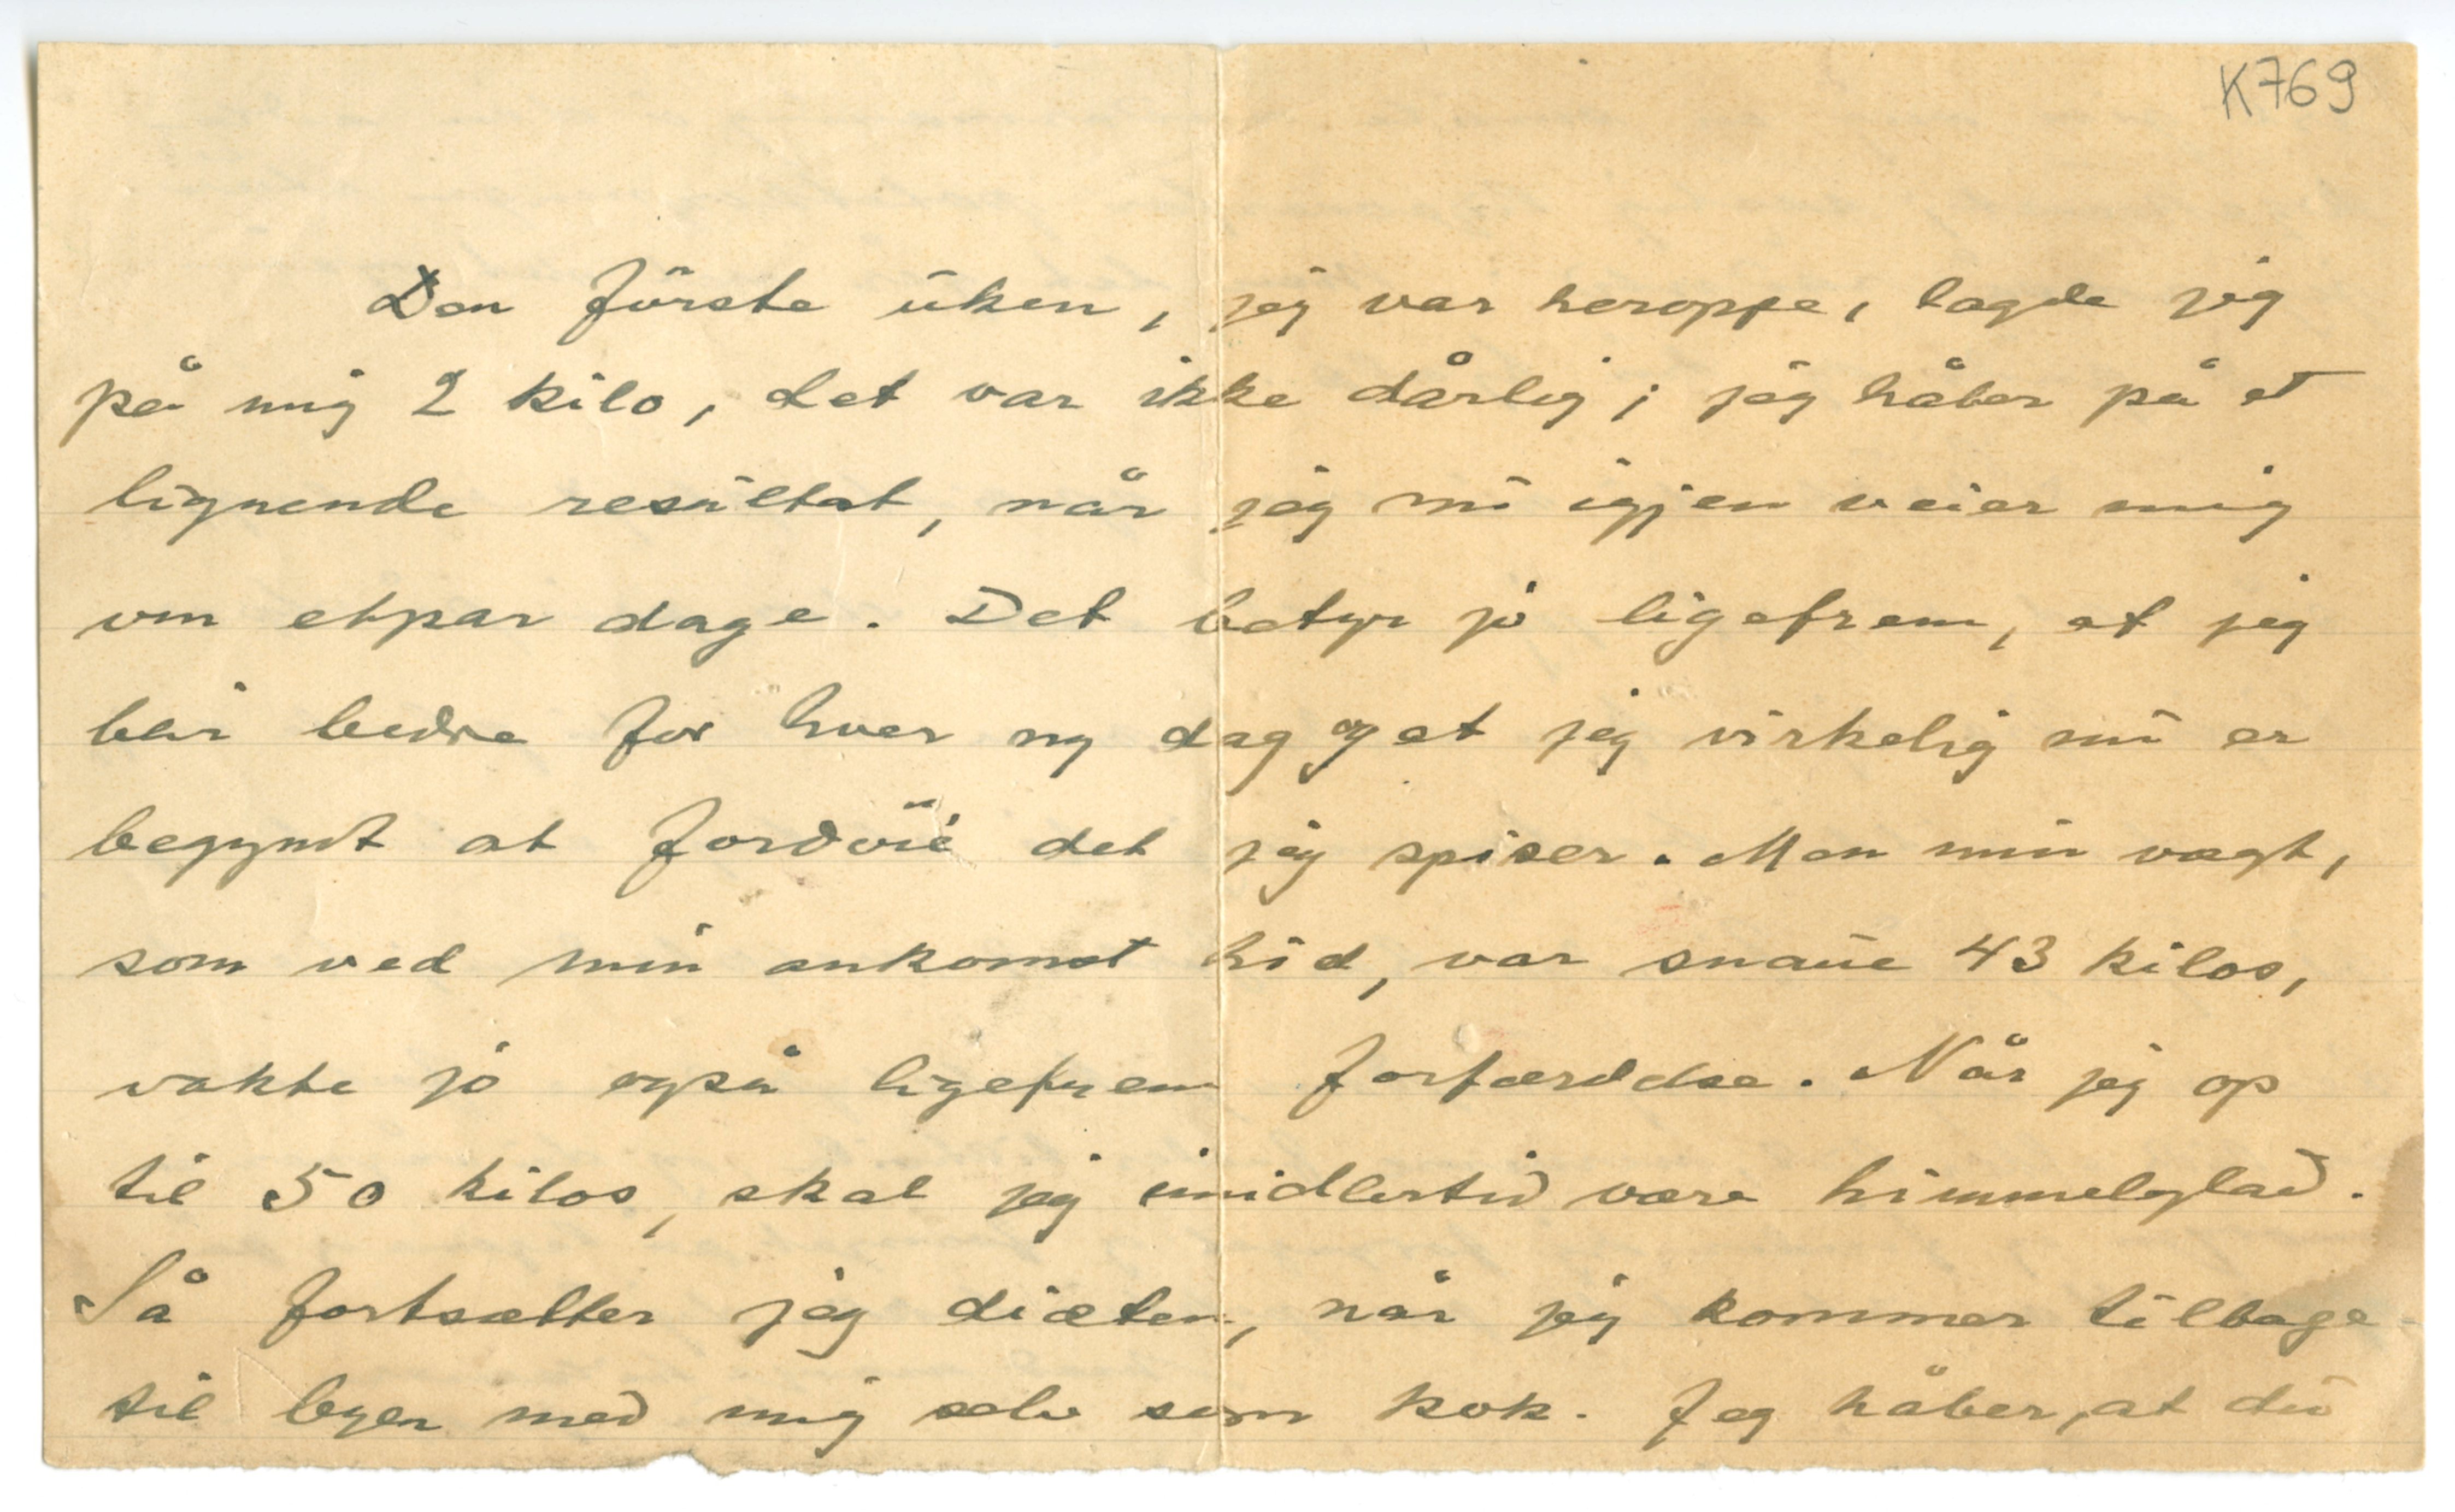 K769
Den förste ūken, jeg var heroppe, lagde jeg
på mig 2 kilo, det var ikke dårlig; jeg håber på et
lignende resūltat, når jeg nū igjen veier mig
om etpar dage. Det betyr jo ligefrem, at jeg
blir bedre for hver ny dag og at jeg virkelig nū er
begyndt at fordöie det jeg spiser. Men min vægt,
som ved min ankomst hid, var snaūe 43 kilos,
vakte jo også ligefrem forfærdelse. Når jeg op
til 50 kilos, skal jeg imidlertid være himmelglad.
Så fortsætter jeg diæten, når jeg kommer tilbage
til byen med mig selv som kok. Jeg håber, at dū